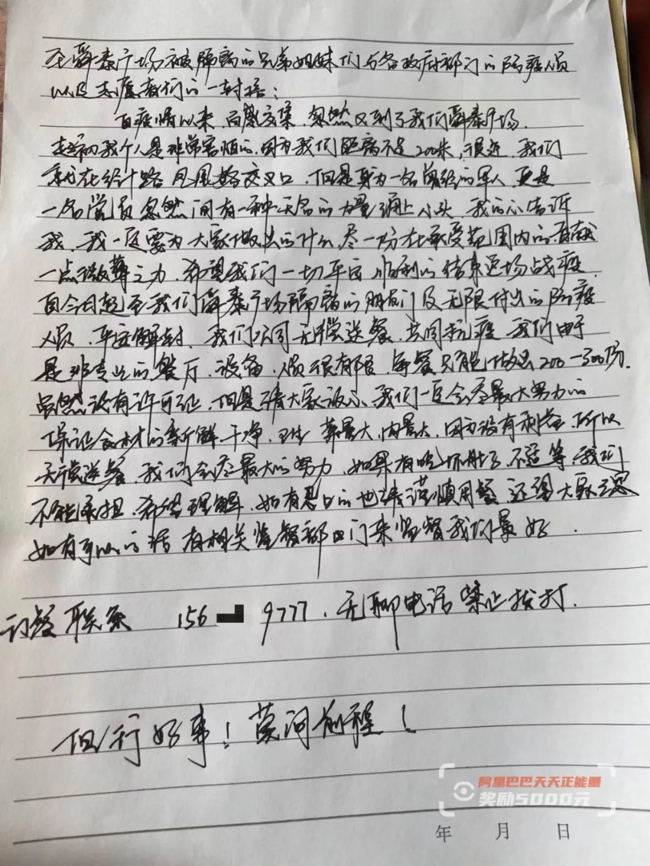 至舜泰广场被隔离的兄弟姐妹们与各政府部门的防疫人员
以及志愿者们的一封信:
自疫情以来,百感交集,忽然又到了我们舜泰广场.
起初我个人是非常害怕的,因为我们距离不足200米,很近,我们
就在经十路凤凰路交叉口,但是身为一名曾经的军人,更是
一名党员忽然间有一种莫名的力量涌上心头,我的心告诉
我,我一定要为大家做点什么,尽一份在承受范围内的贡献
一点微薄之力,希望我们一切平安,顺利的结束这场战疫,
自今日起至我们舜泰广场隔离的朋友们及无限付出的防疫
人员,平安解封,我们公司无偿送餐,共同抗疫,我们由于
是非专业的餐厅,设备,人员很有限,每餐只能做出200-300份.
虽然没有许可证,但是请大家放心,我们一定会尽最大努力的
保证食材的新鲜,干净,卫生,菜量大,肉量大,因为没有利益,所以
无偿送餐,我们会尽最大的努力,如果有吃坏肚子,不适等,我们
不能承担,希望理解,如有忌口的也请谨慎用餐,还望大家
如有可以的话有相关监督部门来监督我们最好.
订餐联系 156 9777.无聊电话禁止拨打.
但行好事!莫问前程!
阿里巴巴天天正能量
奖励5000元
年 月 日